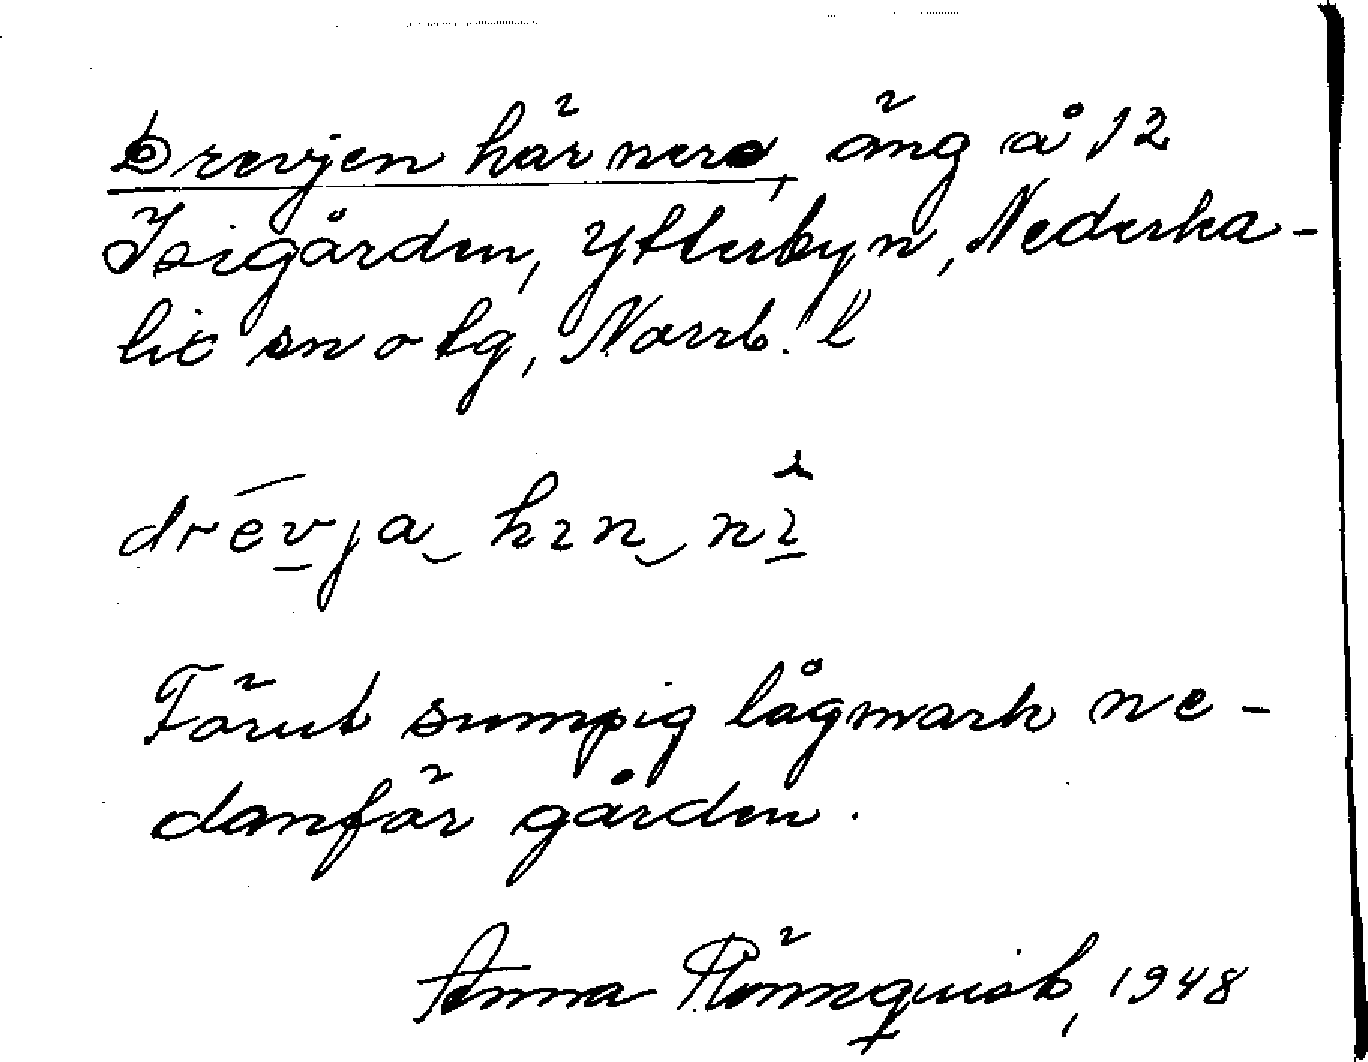 Drevjen här nere, äng å 12
Isigården, Ytterbyn, Nederka-
lix sn o tg, Norrb. l
drēvja hın nı
Förut sumpig lågmark ne-
danför gården.
Anna Rönnquist, 1948